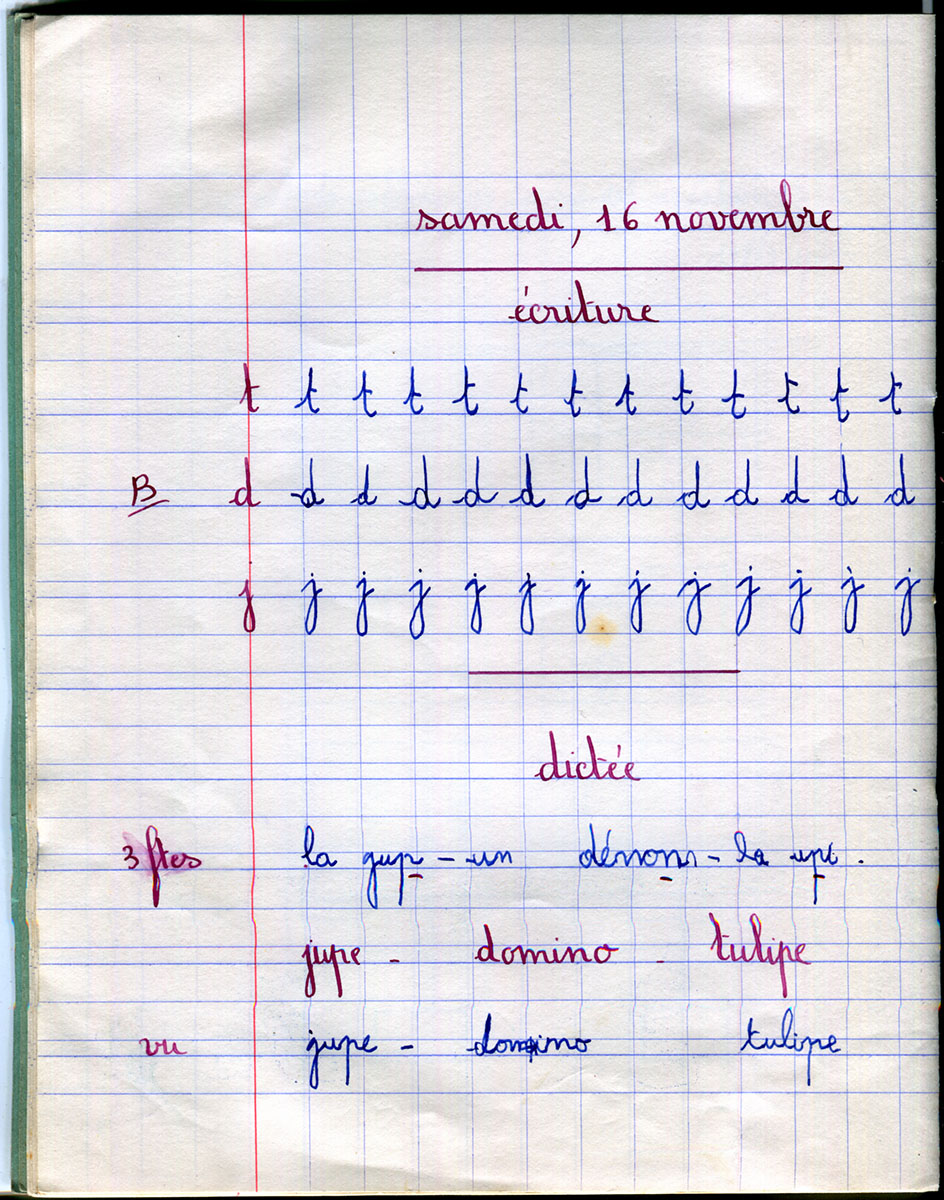 samedi, 16 novembre
écriture
t t t t t t t t t t t t t
B d d d d d d d d d d d d d
j j j j j j j j j j j j j
dictée
3 ftes la gup - un - la upe .
jupe - domino - tulipe
vu jupe - domino tulipe